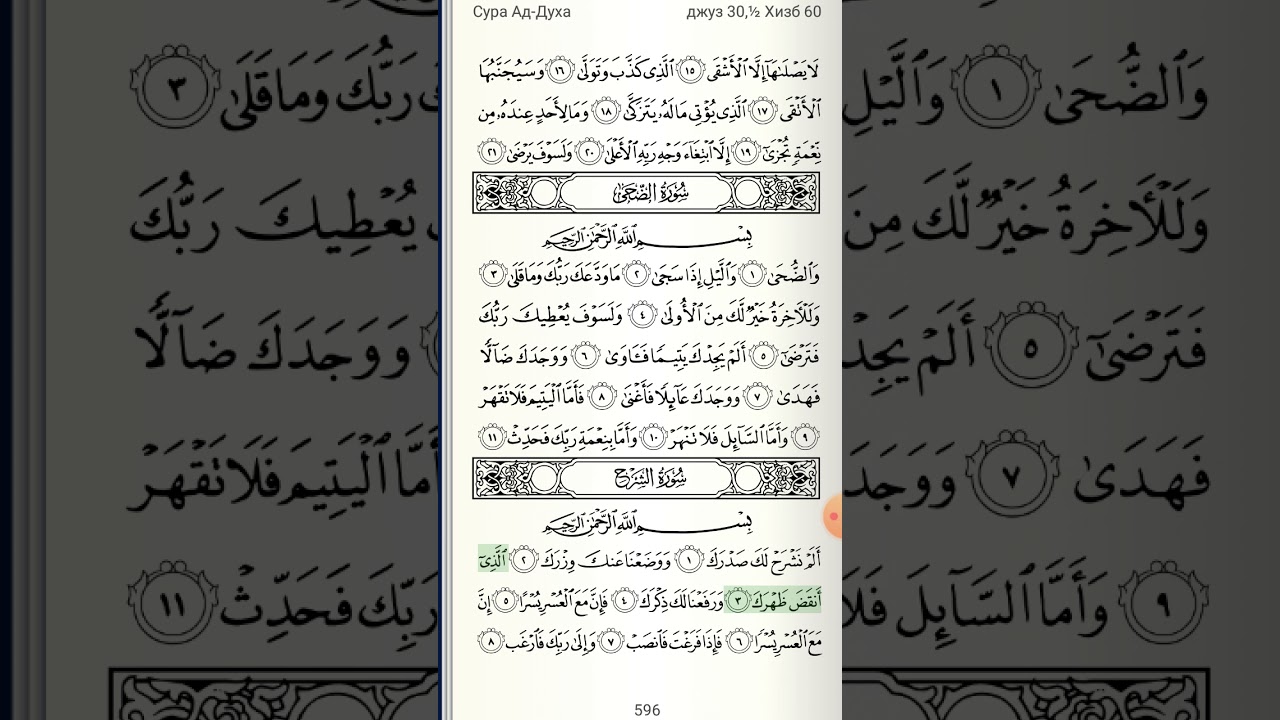 Сура Ад-Духа джуз 30,½ Хизб 60
لَا يَصْلَىٰهَآ إِلَّا ٱلْأَشْقَى ١٥ ٱلَّذِى كَذَّبَ وَتَوَلَّىٰ ١٦ وَسَيُجَنَّبُهَا
ٱلْأَتْقَى ١٧ ٱلَّذِى يُؤْتِى مَالَهُۥ يَتَزَكَّىٰ ١٨ وَمَا لِأَحَدٍ عِندَهُۥ مِن
نِّعْمَةٍ تُجْزَىٰٓ ١٩ إِلَّا ٱبْتِغَآءَ وَجْهِ رَبِّهِ ٱلْأَعْلَىٰ ٢٠ وَلَسَوْفَ يَرْضَىٰ ٢١
سُورَةُ الضُّحَىٰ
بِسْمِ ٱللَّهِ ٱلرَّحْمَٰنِ ٱلرَّحِيمِ
وَٱلضُّحَىٰ ١ وَٱلَّيْلِ إِذَا سَجَىٰ ٢ مَا وَدَّعَكَ رَبُّكَ وَمَا قَلَىٰ ٣
وَلَلْـَٔاخِرَةُ خَيْرٌ لَّكَ مِنَ ٱلْأُولَىٰ ٤ وَلَسَوْفَ يُعْطِيكَ رَبُّكَ
فَتَرْضَىٰٓ ٥ أَلَمْ يَجِدْكَ يَتِيمًا فَـَٔاوَىٰ ٦ وَوَجَدَكَ ضَآلًّا
فَهَدَىٰ ٧ وَوَجَدَكَ عَآئِلًا فَأَغْنَىٰ ٨ فَأَمَّا ٱلْيَتِيمَ فَلَا تَقْهَرْ
٩ وَأَمَّا ٱلسَّآئِلَ فَلَا تَنْهَرْ ١٠ وَأَمَّا بِنِعْمَةِ رَبِّكَ فَحَدِّثْ ١١
سُورَةُ الشَّرْحِ
بِسْمِ ٱللَّهِ ٱلرَّحْمَٰنِ ٱلرَّحِيمِ
أَلَمْ نَشْرَحْ لَكَ صَدْرَكَ ١ وَوَضَعْنَا عَنكَ وِزْرَكَ ٢ ٱلَّذِىٓ
أَنقَضَ ظَهْرَكَ ٣ وَرَفَعْنَا لَكَ ذِكْرَكَ ٤ فَإِنَّ مَعَ ٱلْعُسْرِ يُسْرًا ٥ إِنَّ
مَعَ ٱلْعُسْرِ يُسْرًا ٦ فَإِذَا فَرَغْتَ فَٱنصَبْ ٧ وَإِلَىٰ رَبِّكَ فَٱرْغَب ٨
596